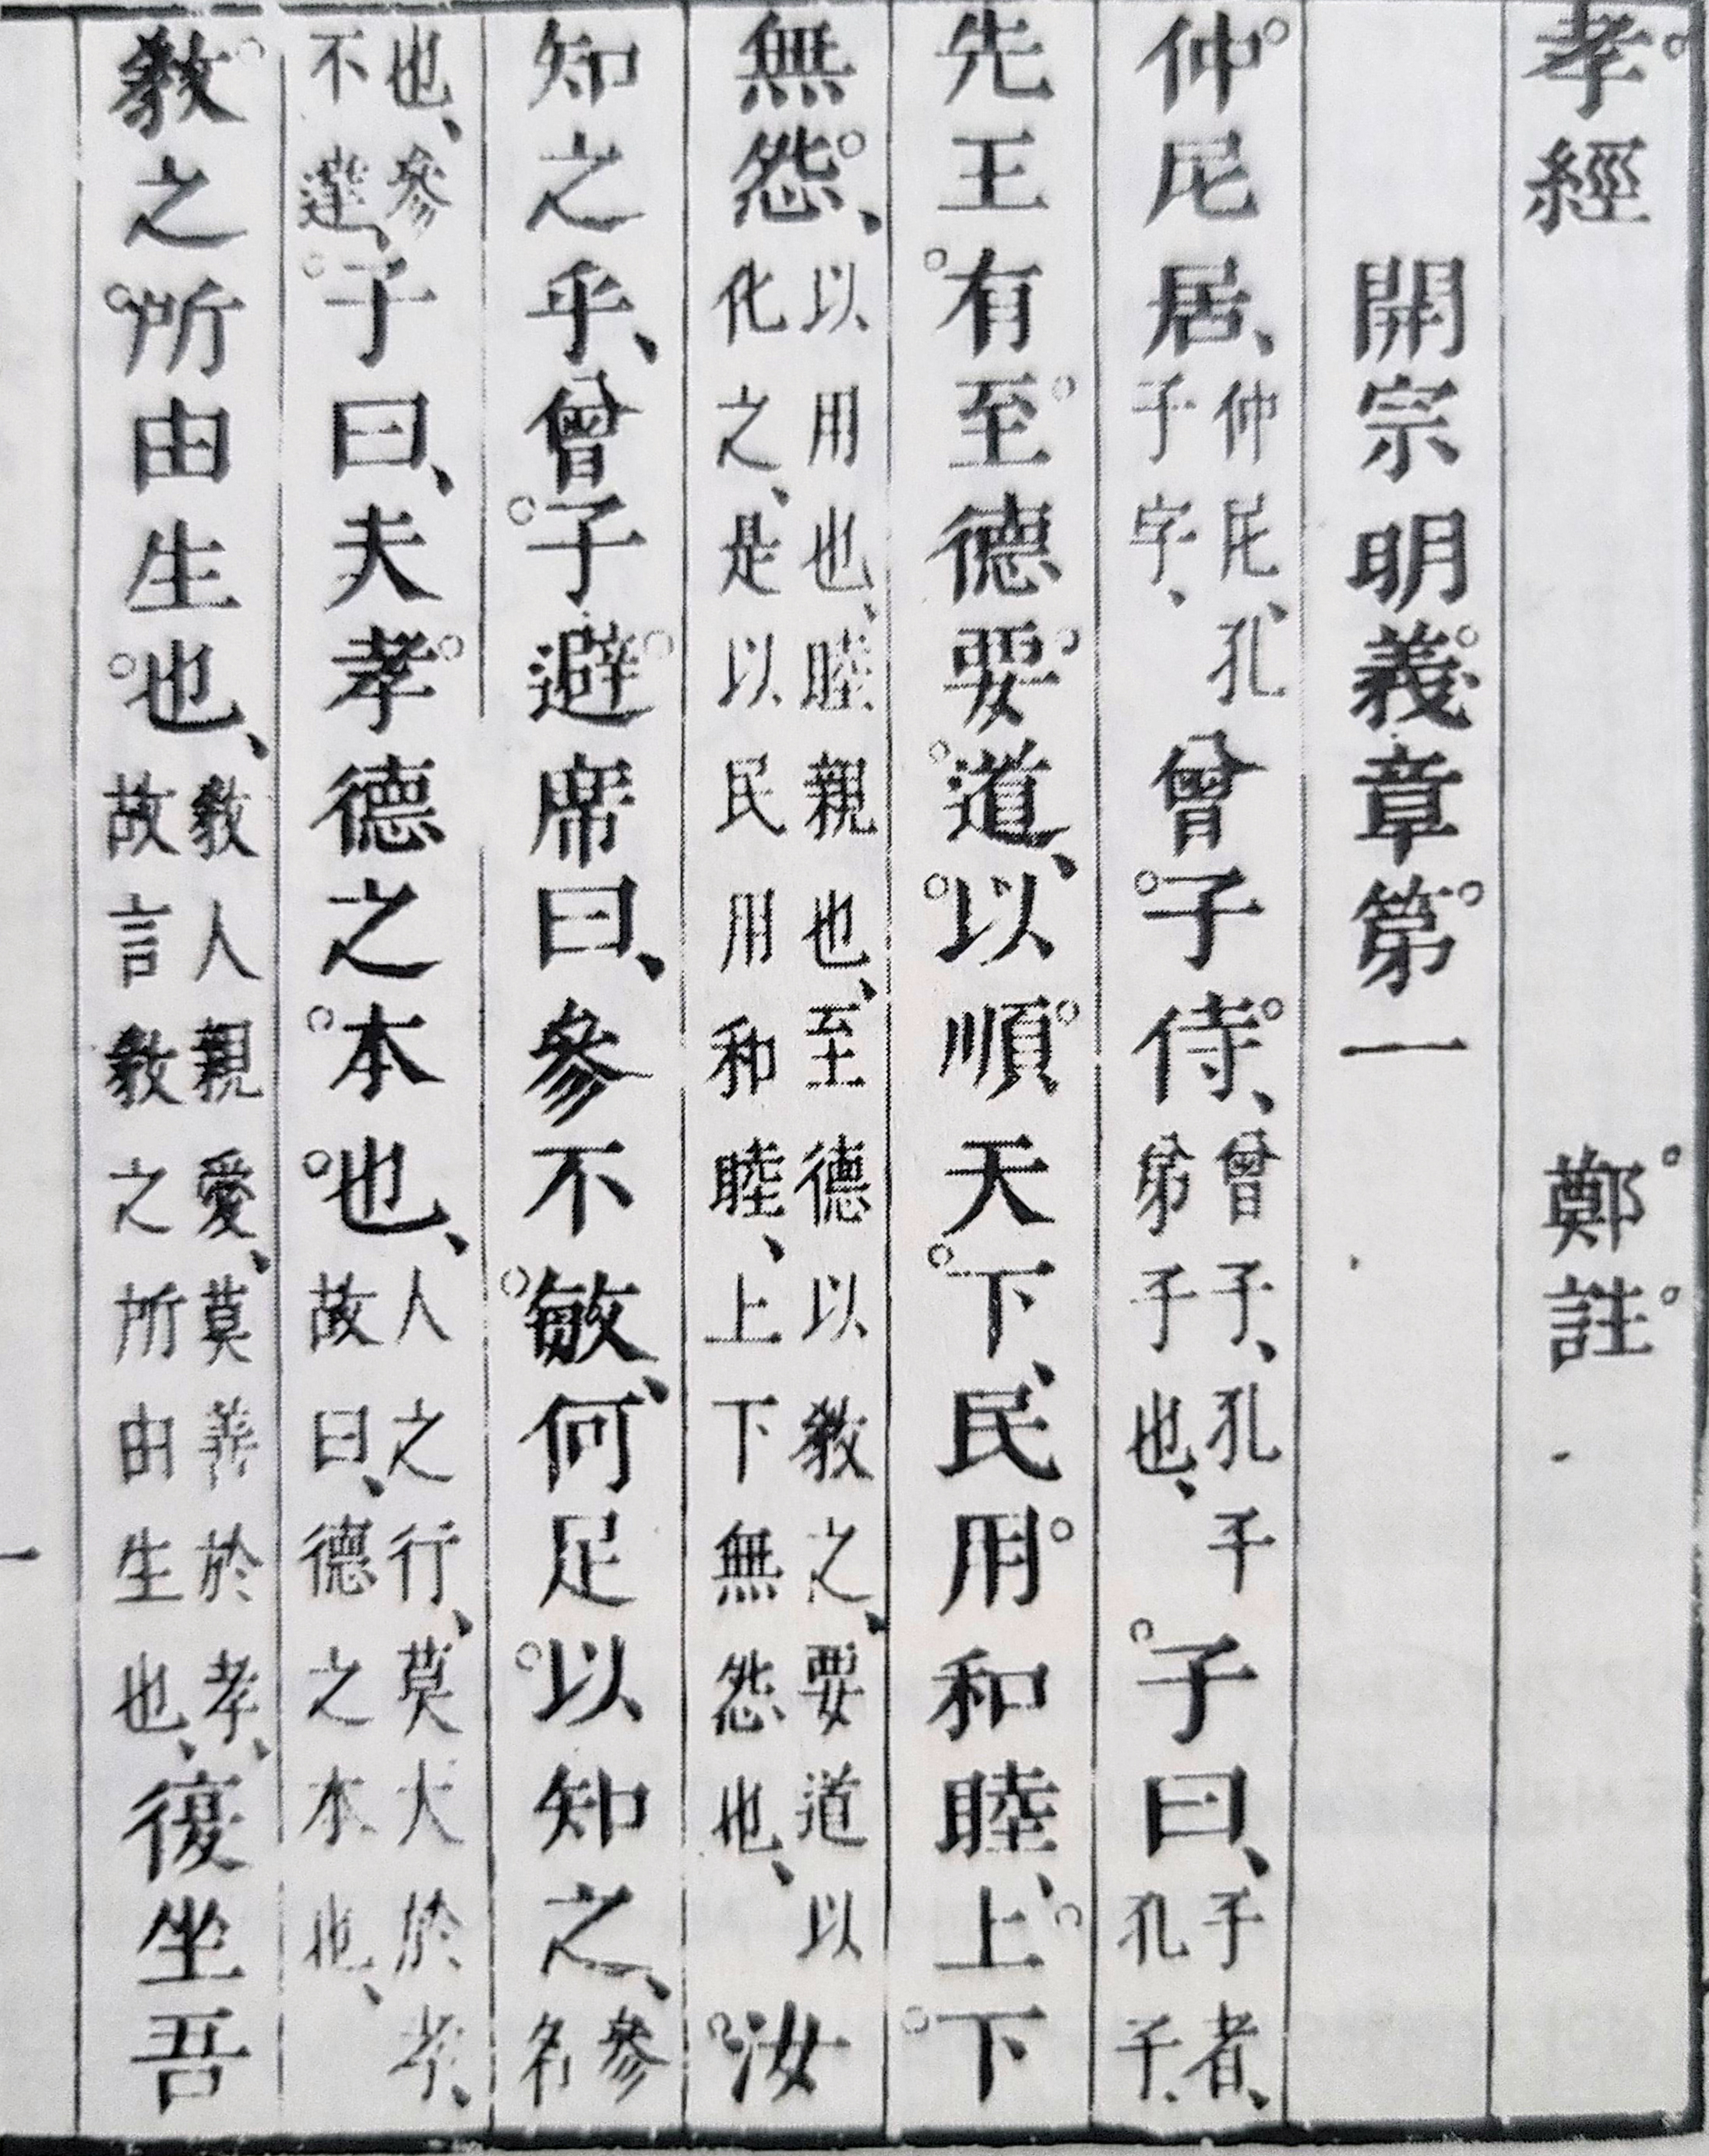 孝經　鄭註
開宗明義章第一
仲尼居、仲尼、孔子字、曾子侍、曾子、孔子弟子也、子曰、子者、孔子、
先王有至德要道、以順天下、民用和睦、上下
無怨、以用也、睦親也、至德以敎之、要道以化之、是以民用和睦、上下無怨也、汝
知之乎、曾子避席曰、參不敏、何足以知之、參名
也、參不達、子曰、夫孝德之本也、人之行、莫大於孝、故曰、德之本也、
敎之所由生也、敎人親愛、莫善於孝、故言敎之所由生也、復坐吾
一